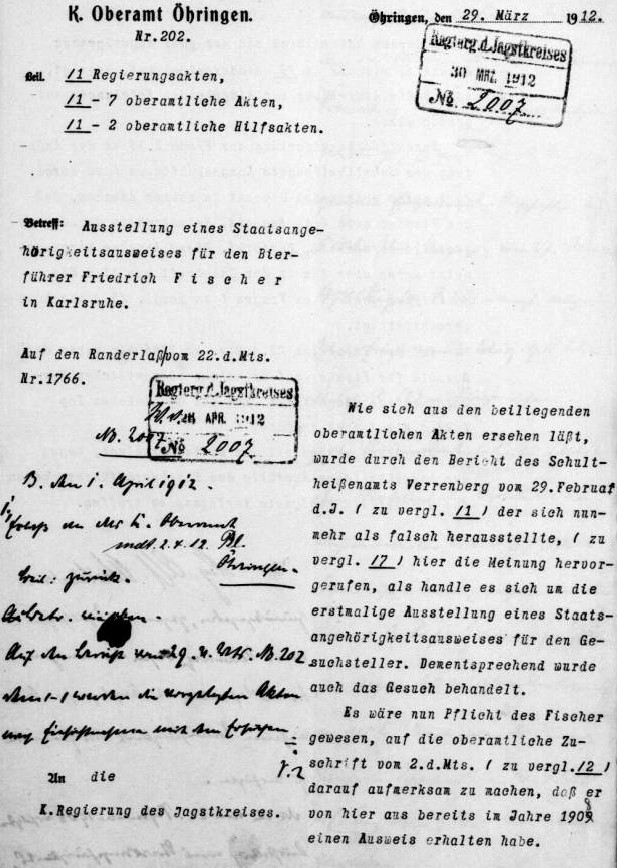 K. Oberamt Öhringen.
Nr.202.
Öhringen, den 29. März 1912.
Regierg.d.Jagstkreises
30 MRZ. 1912
No 2007
Beil. /1 Regierungsakten,
/1 - 7 oberamtliche Akten,
/1 - 2 oberamtliche Hilfsakten.
Betreff: Ausstellung eines Staatsange-
hörigkeitsausweises für den Bier-
führer Friedrich Fischer
in Karlsruhe.
Auf den Randerlaß vom 22.d.Mts.
Nr.1766.
Regierg.d.Jagstkreises
APR. 1912
No 2007
N. 2007
B. den 1. April 1912
Oberamt
2.4.12.
Öhringen.
zurück.
N. 202
An die
K.Regierung des Jagstkreises.
Wie sich aus den beiliegenden
oberamtlichen Akten ersehen läßt,
wurde durch den Bericht des Schult-
heißenamts Verrenberg vom 29.Februar
d.J. ( zu vergl. /1 ) der sich nun-
mehr als falsch herausstellte, ( zu
vergl. /7 ) hier die Meinung hervor-
gerufen, als handle es sich um die
erstmalige Ausstellung eines Staats-
angehörigkeitsausweises für den Ge-
suchsteller. Dementsprechend wurde
auch das Gesuch behandelt.
Es wäre nun Pflicht des Fischer
gewesen, auf die oberamtliche Zu-
schrift vom 2.d.Mts. ( zu vergl./2 )
darauf aufmerksam zu machen, daß er
von hier aus bereits im Jahre 1908
einen Ausweis erhalten habe.